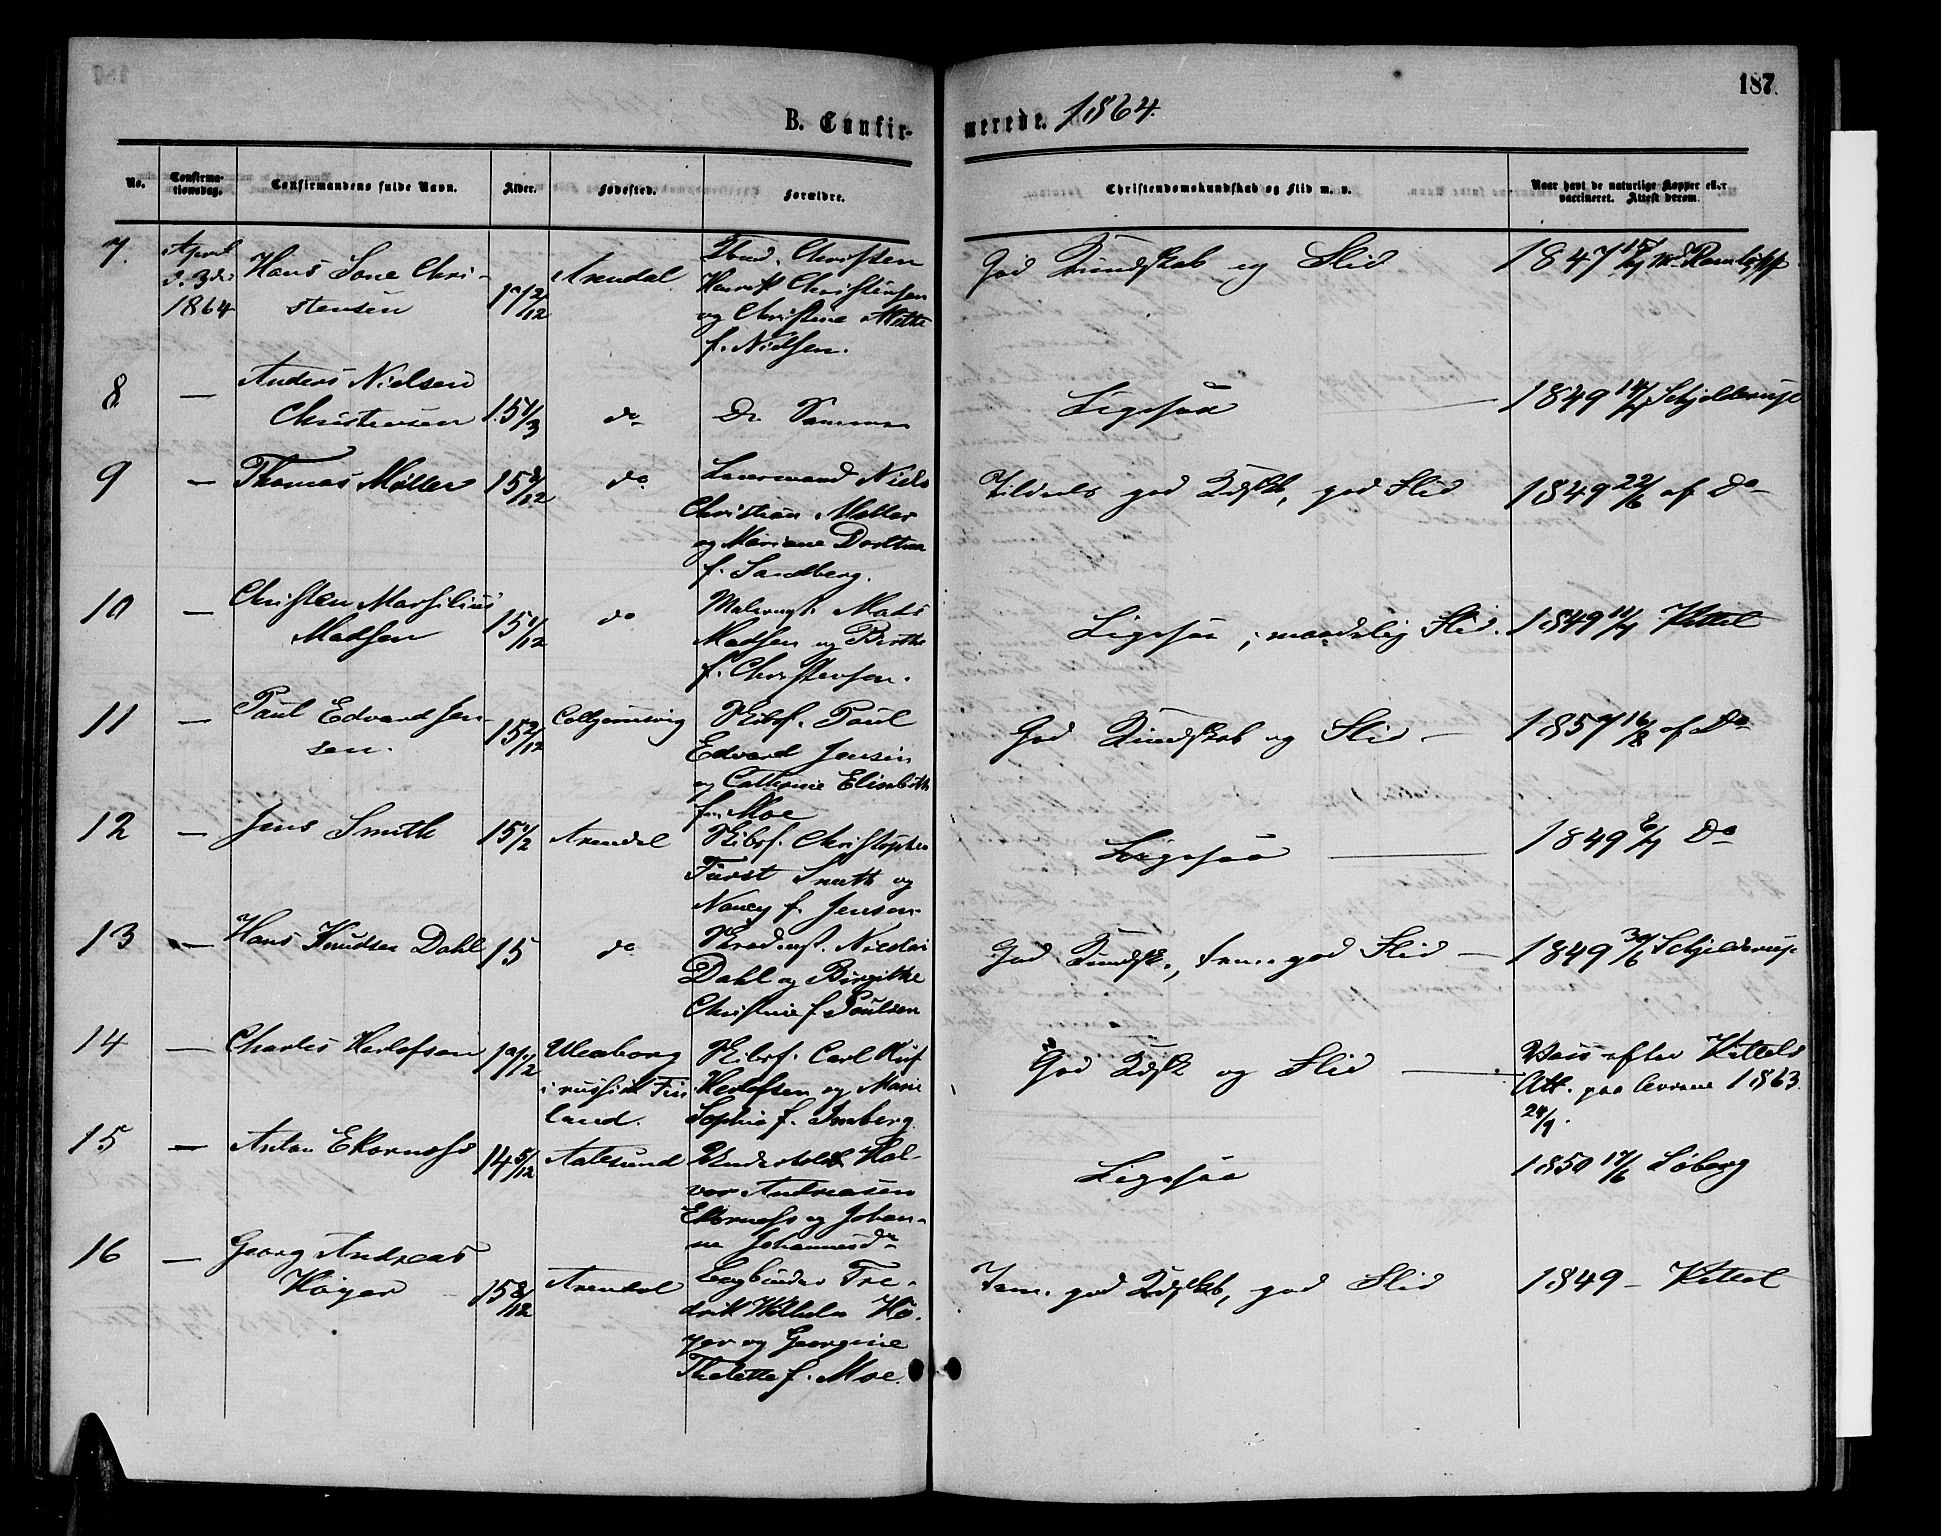 187.
B. Confir-
merede. 1864.
No.
Confirma-
tionsdag.
Confirmandens fulde Navn.
Alder.
Fødested.
Forældre.
Christendomskundskab og Flid m. v.
Naar havt de naturlige Kopper eller
vaccineret. Attest derom.
7.
April
d. 3die
1864
Hans Chri-
stensen
17 2/12
Arendal
Christen
Henrik Christensen
og Christine Mette
f. Nielsen.
God Kundskab og Flid
1847
8
—
Anders Nielsen
Christensen
15 1/3
do
De Samme
Ligesaa —
1849 Schjelderup
9
—
Thomas Møller
15 2/12
do
Niels
Christian Møller
og Mariane Dorthea
f. Sandberg.
Tildels god Kdskb, god Flid
1849 22/6 af Do
10
—
Christen Marsilius
Madsen
15 1/12
do
Mads
Madsen og Birthe
f. Christensen.
Ligesaa, maadelig Flid.
1849 Kittel
11
—
Paul Edvard Jen-
sen.
15 2/12
Colbjørnsvig
Skibsf. Paul
Edvard Jensen
og Cathrine Elisabeth
f. Moe
God Kundskab og Flid —
1857 16/8 af Do
12
—
Jens Smith
15 1/2
Arendal
Skibsf. Christopher
Fürst Smith og
Nancy f. Jensen
Ligesaa —
1849 6/7 Do
13
—
Hans Knudsen Dahl
15
do
Nicolai
Dahl og Birgitte
Christine f. Poulsen
God Kundsk., tem. god Flid —
1849 30/6 Schjelderup
14
—
Charles Herlofsen
Uleaborg
i russisk Fin-
land.
Skibsf. Carl
Herlofsen og Marie
Sophie f.
God Kdsk og Flid —
Vacc. efter Kittels
Att. paa 1863
24/9.
15
—
Anton Ekorness
14 5/12
Aalesund
Hal-
vor Andreasen
Ekorness og Johan-
ne Johannesdr
Ligesaa
1850 17/6 Søberg
16
—
Georg Andreas
Høyer
15 8/12
Arendal
Bogbinder Fre-
drik Wilhelm Hø-
yer og Georgine
Thalette f. Moe.
Tem. god Kdskb, god Flid
1849 — Kittel